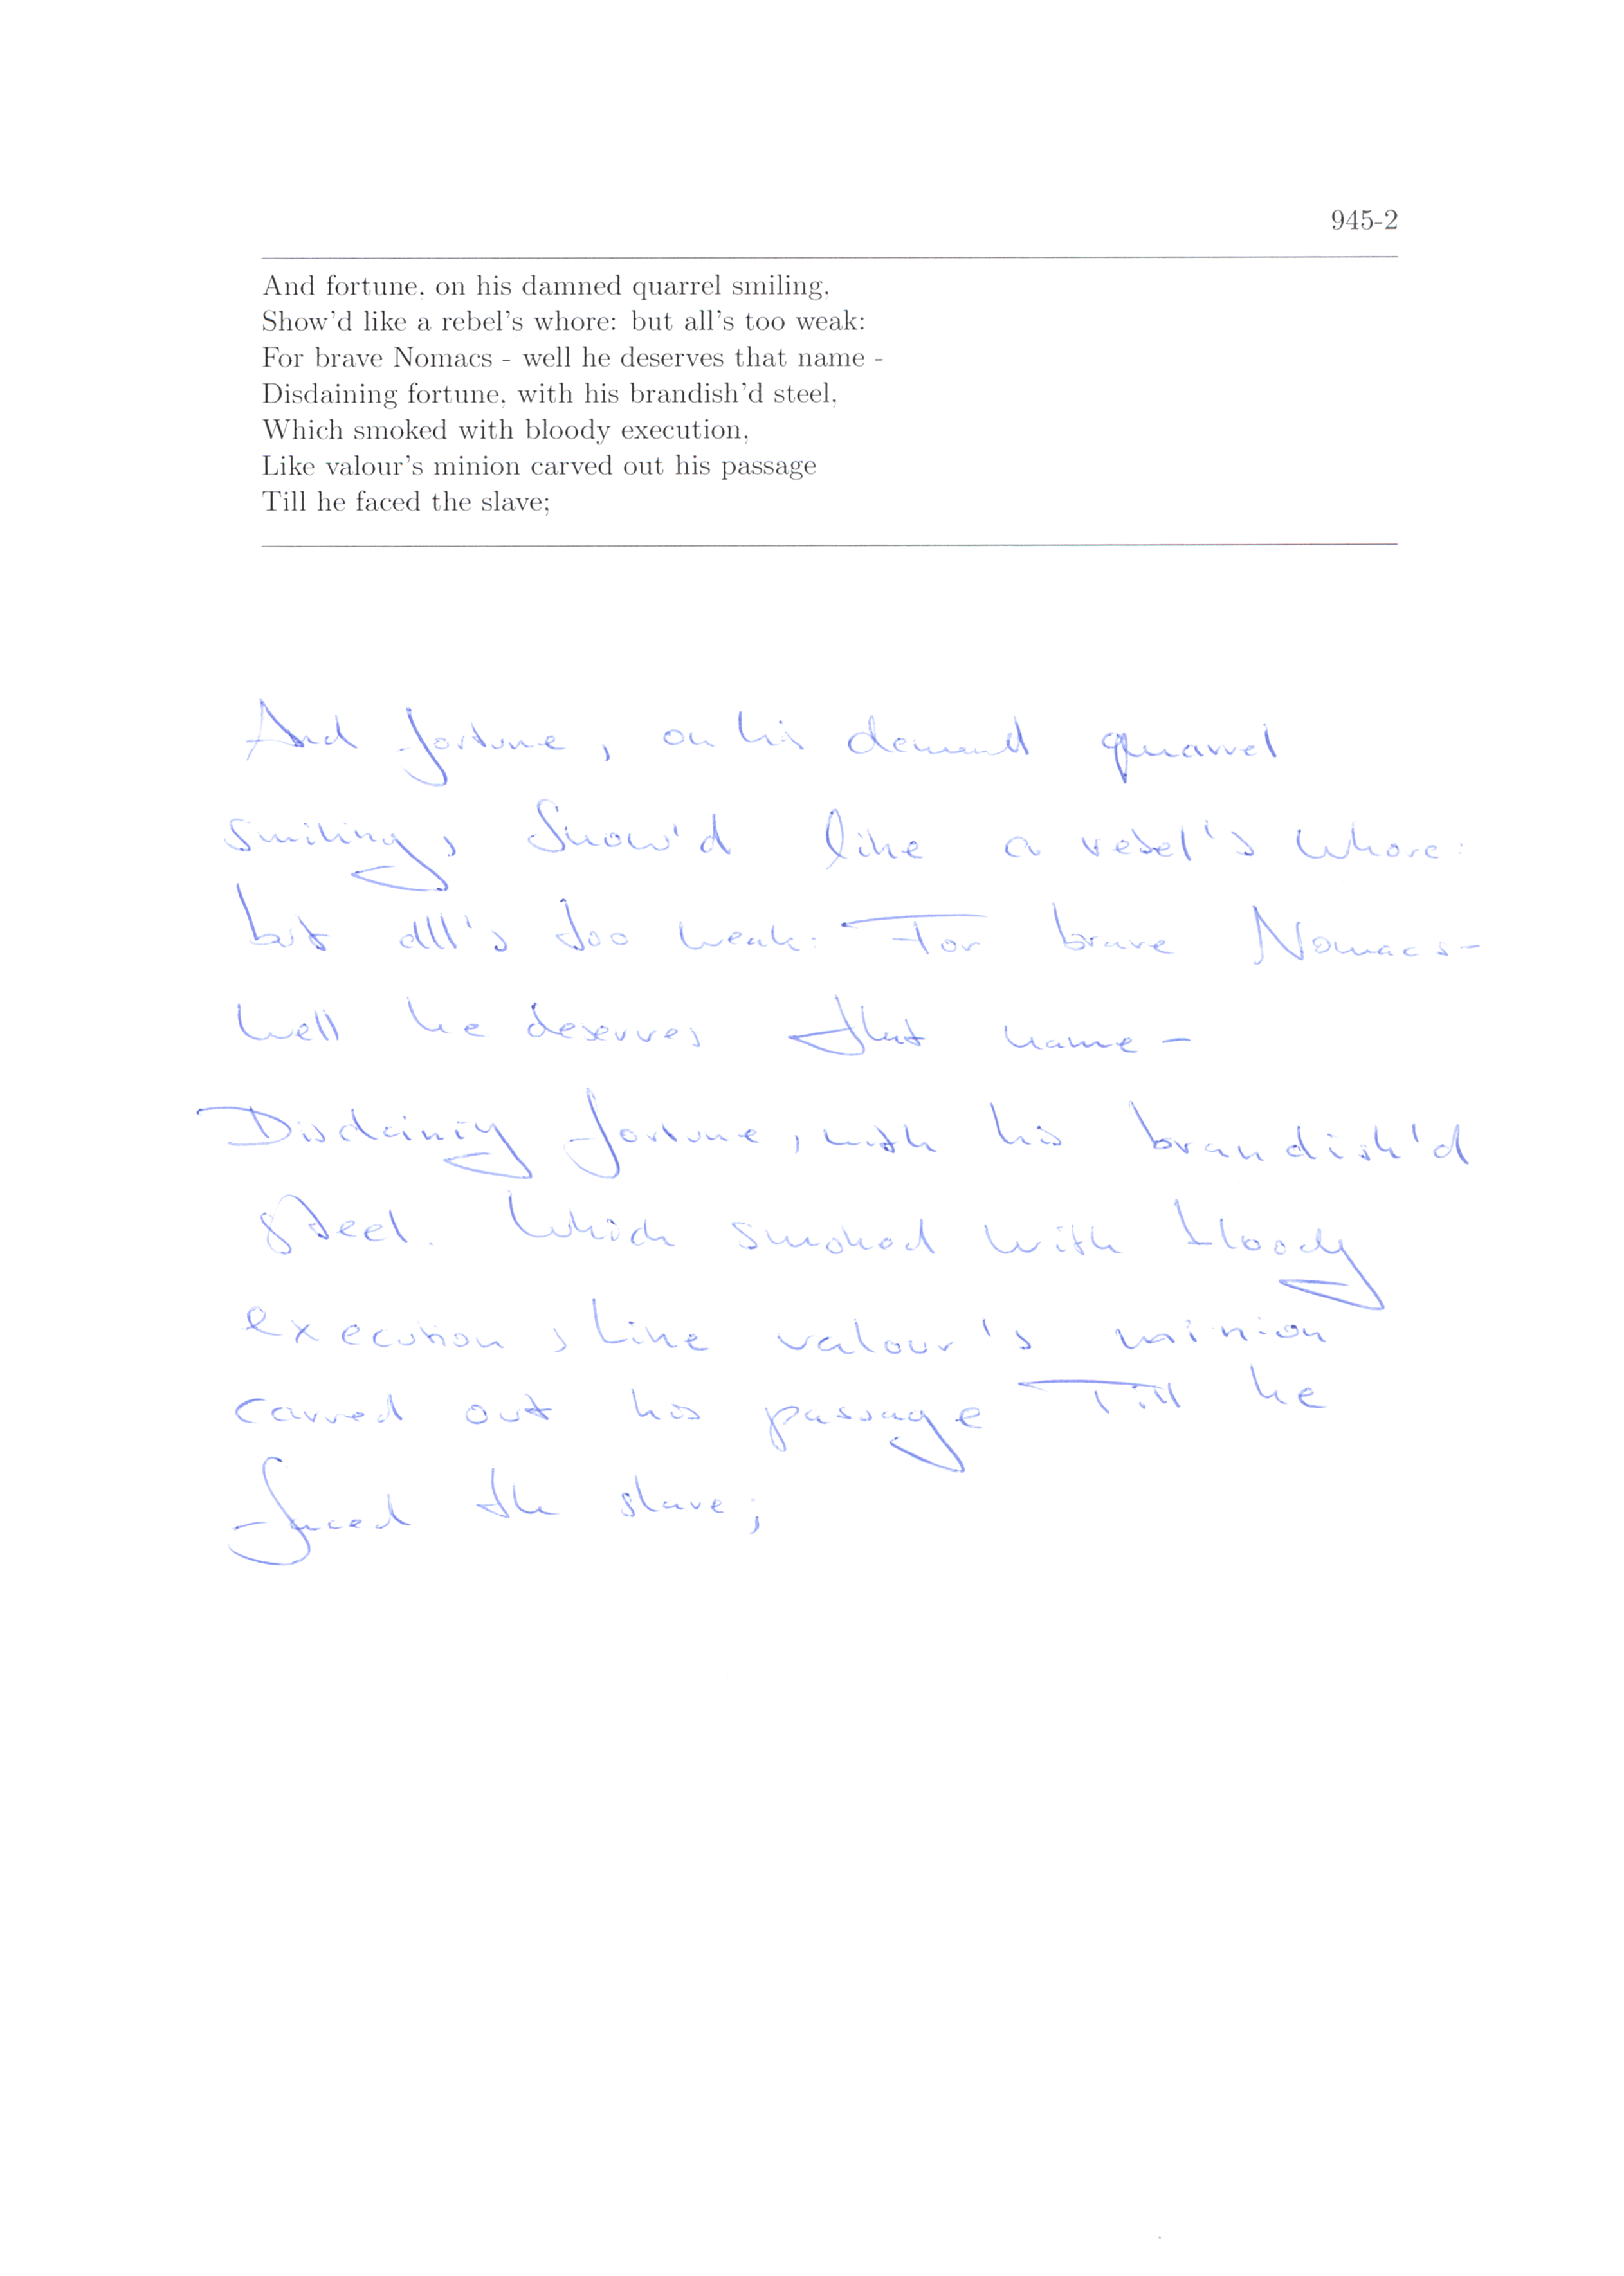 945-2
And fortune, on his damned quarrel smiling,
Show'd like a rebel's whore: but all's too weak:
For brave Nomacs - well he deserves that name -
Disdaining fortune, with his brandish'd steel,
Which smoked with bloody execution,
Like valour's minion carved out his passage
Till he faced the slave;
And fortune, on his damned quarrel
smiling, Show'd like a rebel's whore:
but all's too weak: For brave Nomacs-
well he deserves that name -
Disdaining fortune, with his brandish'd
steel. Which smoked with bloody
execution, Like valour's minion
carved out his passage Till he
faced the slave;